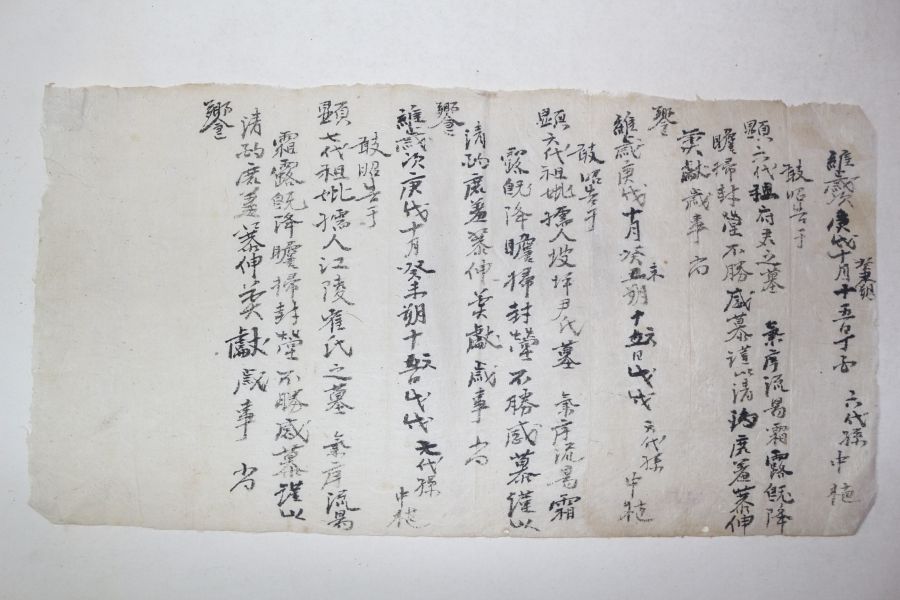 維歲庚戌十月癸未朔十五日丁酉 六代孫中
敢昭告于
顯六代祖府君之墓 氣序流易霜露旣降
瞻掃封塋不勝感慕謹以清酌庶羞恭伸
奠獻歲事 尚
饗
維歲庚戌十月癸未朔十五六日戊戌 六代孫中
敢昭告于
顯六代祖妣孺人坡坪尹氏墓 氣序流易霜
露旣降瞻掃封塋不勝感慕謹以
清酌庶羞恭伸奠獻歲事 尚
饗
維歲次庚戌十月癸未朔十五六日戊戌 七代孫中
敢昭告于
顯七代祖妣孺人江陵崔氏之墓 氣序流易
霜露旣降瞻掃封塋不勝感慕謹以
清酌庶羞恭伸奠獻歲事 尚
饗